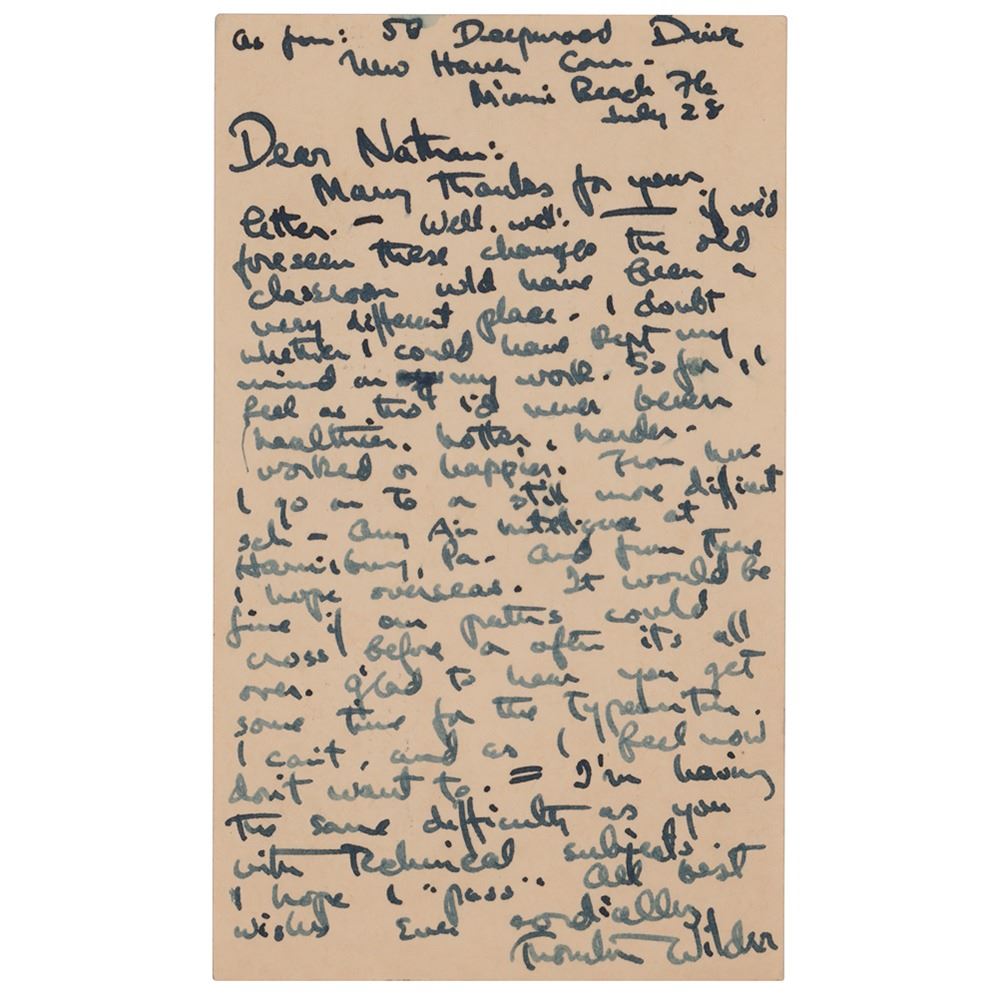 as from: 50 Deepwood Drive
New Haven Conn.
Miami Beach Fla
July 28
Dear Nathan:
Many thanks for your
letter. — Well, well: if we'd
foreseen these changes the old
classroom wld have been a
very different place. I doubt
whether I could have kept my
mind on my work. So far I
feel as tho' I'd never been
healthier, hotter, harder-
worked or happier. From here
I go on to a still more difficult
sch — Army Air Intelligence at
Harrisburg, Pa. and from there
I hope overseas. It would be
fine if our paths could
cross before or after it's all
over. Glad to hear you get
some time for the typewriter.
I can't, and as I feel now
don't want to. = I'm having
the same difficulty as you
with technical subjects.
I hope I "pass". All best
wishes Ever cordially
Thornton Wilder